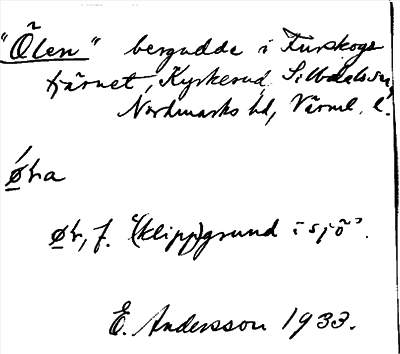 "Ölen" bergudde i Furskogs
tjärnet, Kyrkerud, Silbodals sn,
Nordmarks hd, Värml. l.
ø̄́ra
ør, f. "(klipp)grund i sjö".
E. Andersson 1933.